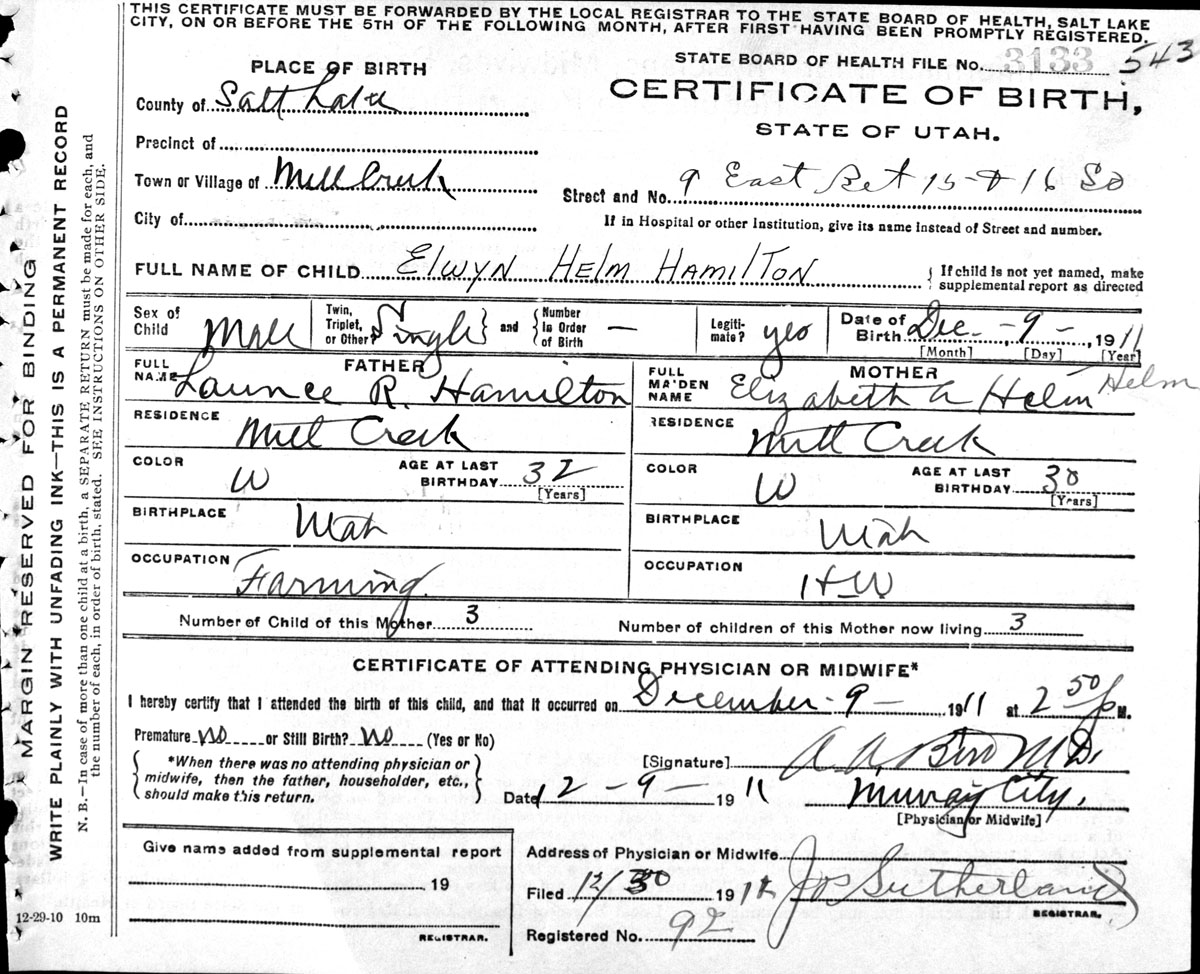 THIS CERTIFICATE MUST BE FORWARDED BY THE LOCAL REGISTRAR TO THE STATE BOARD OF HEALTH, SALT LAKE
CITY, ON OR BEFORE THE 5TH OF THE FOLLOWING MONTH, AFTER FIRST HAVING BEEN PROMPTLY REGISTERED.
STATE BOARD OF HEALTH FILE No. 3133 543
PLACE OF BIRTH
CERTIFICATE OF BIRTH,
STATE OF UTAH.
County of Salt Lake
Precinct of
Town or Village of Mill Creek
Street and No. 9 East Bet 15 & 16 So
City of
If in Hospital or other Institution, give its name instead of Street and number.
FULL NAME OF CHILD ELWYN HELM HAMILTON
{ If child is not yet named, make supplemental report as directed
Sex of Child Male Twin, Triplet, or Other? { Single } and { Number in Order of Birth — Legiti- mate? yes Date of Birth Dec. - 9 - , 1911
[Month] [Day] [Year]
FATHER
FULL NAME Launce R. Hamilton
RESIDENCE Mill Creek
COLOR W AGE AT LAST BIRTHDAY 32 [Years]
BIRTHPLACE Utah
OCCUPATION Farming
MOTHER
FULL MAIDEN NAME Elizabeth A Helm Helm
RESIDENCE Mill Creek
COLOR W AGE AT LAST BIRTHDAY 30 [Years]
BIRTHPLACE Utah
OCCUPATION HW
Number of Child of this Mother 3 Number of children of this Mother now living 3
CERTIFICATE OF ATTENDING PHYSICIAN OR MIDWIFE*
I hereby certify that I attended the birth of this child, and that it occurred on December - 9 - 1911 at 2 50 p M.
Premature no or Still Birth? no (Yes or No)
{ *When there was no attending physician or midwife, then the father, householder, etc., should make this return. }
[Signature] A. A. M D.
Date 12 - 9 - 1911 Murray City.
[Physician or Midwife]
Give name added from supplemental report
19
REGISTRAR.
12-29-10 10m
Address of Physician or Midwife
Filed 12/30 1911 Jos Sutherland
REGISTRAR.
Registered No. 92
MARGIN RESERVED FOR BINDING
WRITE PLAINLY WITH UNFADING INK—THIS IS A PERMANENT RECORD
N. B.—In case of more than one child at a birth, a SEPARATE RETURN must be made for each, and
the number of each, in order of birth, stated. SEE INSTRUCTIONS ON OTHER SIDE.